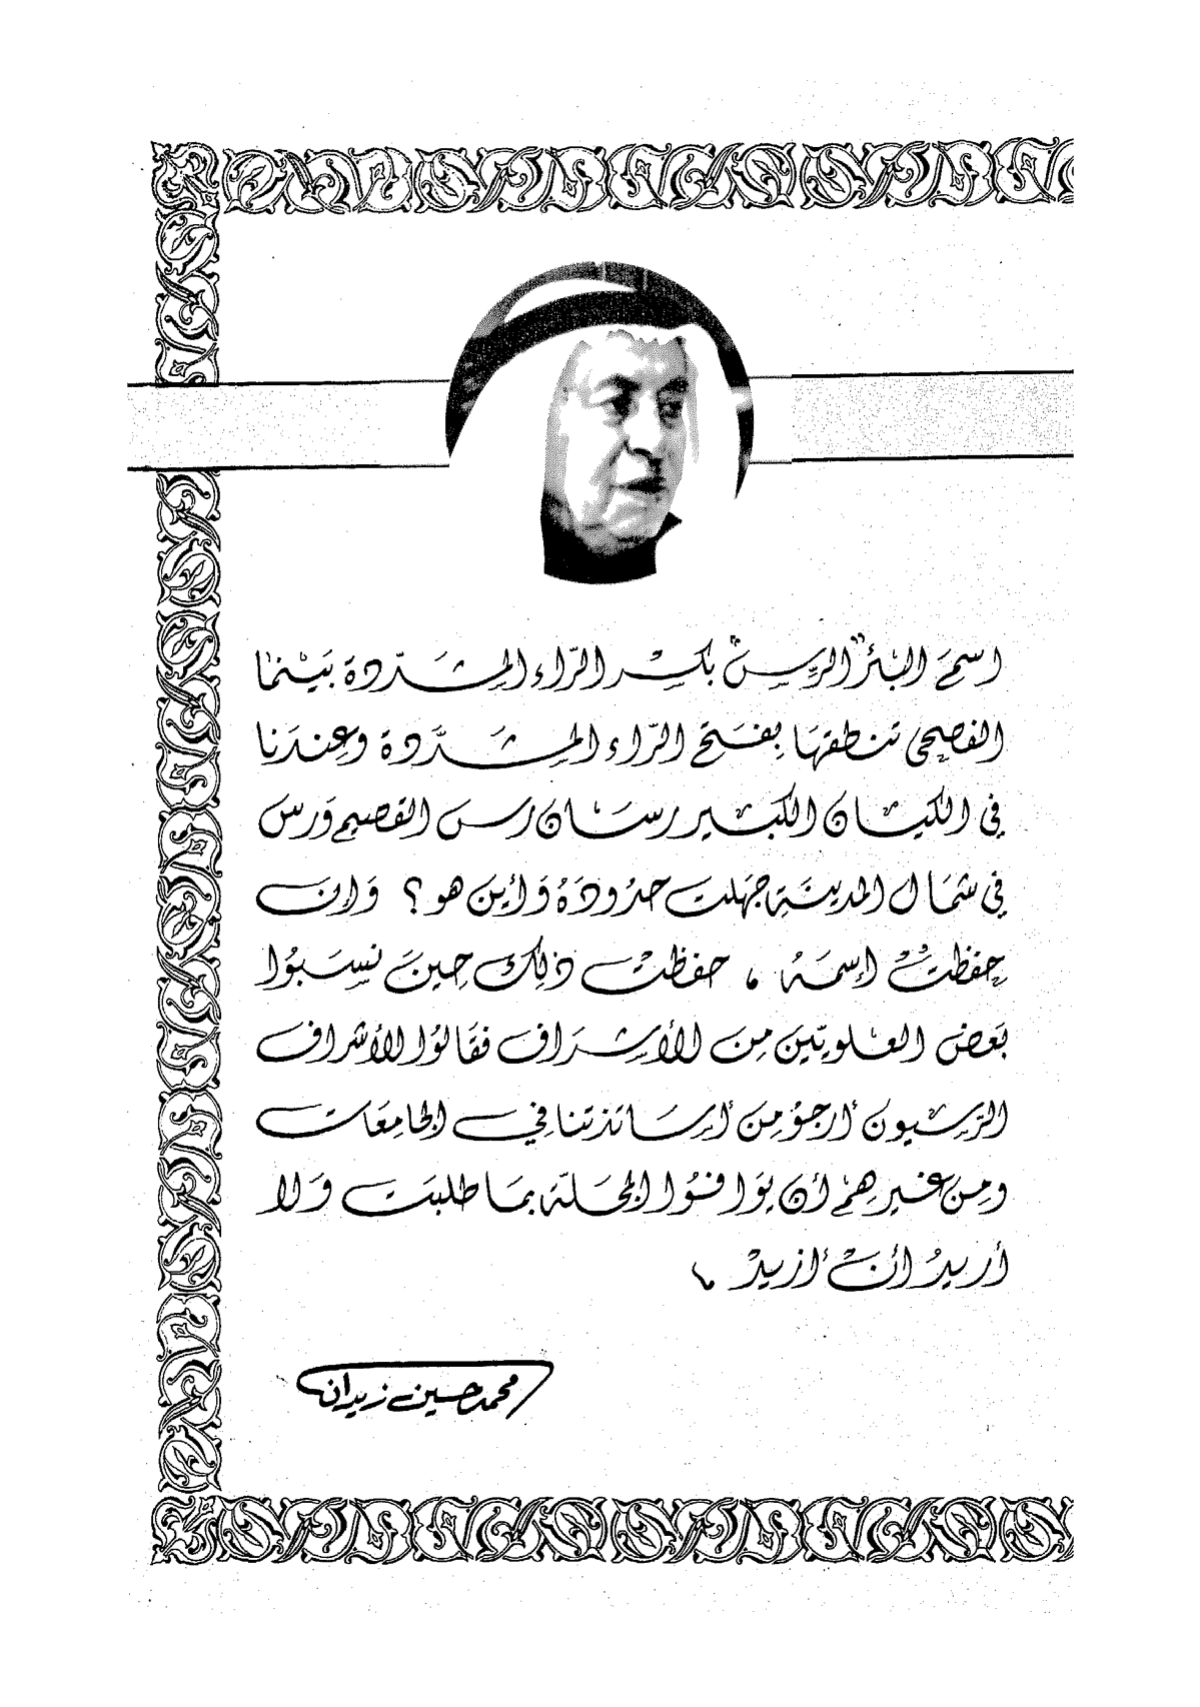 اسمَ البئر "الرِسّ" بكسر الرّاء المشدّدة بَينما
الفصحى تنطقهَا بِفَتحَ الرّاء المشدَّدة وعِندَنا
في الكيَان الكبير رسَان رس القصيم وَرس
في شمَال المدينَة جهَلت حدُودَهُ وَأين هو؟ وَإن
حِفظتْ إسمَهُ ، حفظتْ ذلِك حِينَ نسَبُوا
بَعض العلويّين مِن الأشرَاف فقَالوُا الأشراف
الرّسيون أرجوُ مِن أسَاتذتنا في الجامِعَات
ومِن غيرهِمْ أن يوَافوُا المجَلّة بمَا طلبَت وَلا
أريدُ أنْ أزيدْ ،
محمد حسين زيدان